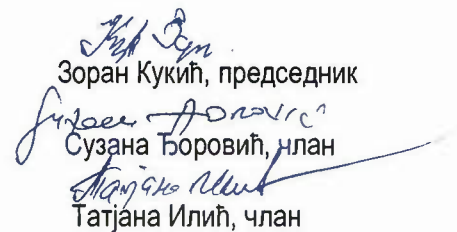 Зоран Кукић, председник
Сузана Ђоровић, члан
Татјана Илић, члан